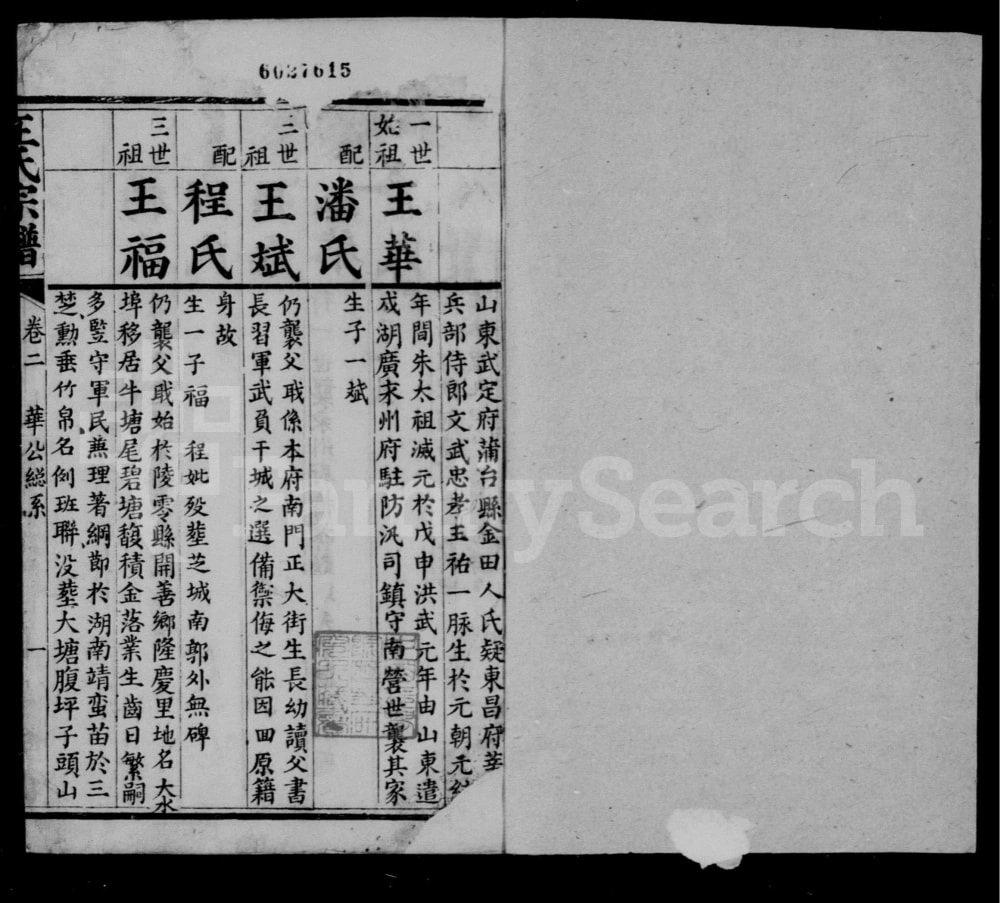 6027615
一世
始祖
王華
山東武定府蒲台縣金田人氏疑東昌府莘
兵部侍郎文武忠孝王祐一脉生於元朝元
年間朱太祖滅元於戊申洪武元年由山東遣
戍湖廣永州府駐防汎司鎮守南營世襲其家
配
潘氏
生子一斌
二世
祖
王斌
仍襲父戢係本府南門正大街生長幼讀父書
長習軍武員干城之選備禦侮之能因回原籍
身故
配
程氏
生一子福 程妣歿塟芝城南郭外無碑
三世
祖
王福
仍襲父戢始於陵零縣開善鄉隆慶里地名大水
埠移居牛塘尾碧塘馥積金落業生齒日繁嗣
多監守軍民蕪理著綱節於湖南靖蛮苗於三
楚勲垂竹帛名例班聯没塟大塘腹坪子頭山
王氏宗譜
卷二
華公總系
一
FamilySearch